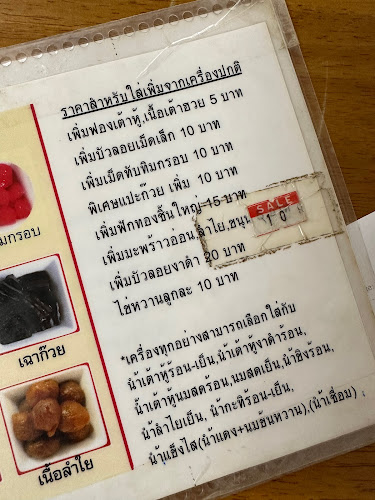 ราคาสำหรับใส่เพิ่มจากเครื่องปกติ
เพิ่มฟองเต้าหู้,เนื้อเต้าฮวย 5 บาท
เพิ่มบัวลอยเม็ดเล็ก 10 บาท
เพิ่มเม็ดทับทิมกรอบ 10 บาท
พิเศษแปะก๊วย เพิ่ม 10 บาท
เพิ่มฟักทองชิ้นใหญ่ 15 บาท
เพิ่มมะพร้าวอ่อน,ลำไย,ขนุน
SALE
10
เพิ่มบัวลอยงาดำ 20 บาท
ไข่หวานลูกละ 10 บาท
*เครื่องทุกอย่างสามารถเลือกใส่กับ
น้ำเต้าหู้ร้อน-เย็น,น้ำเต้าหู้งาดำร้อน,
น้ำเต้าหู้นมสดร้อน,นมสดเย็น,น้ำขิงร้อน,
น้ำลำไยเย็น, น้ำกะทิร้อน-เย็น,
น้ำแข็งไส(น้ำแดง+นมข้นหวาน),(น้ำเชื่อม)
มกรอบ
เฉาก๊วย
เนื้อลำไย